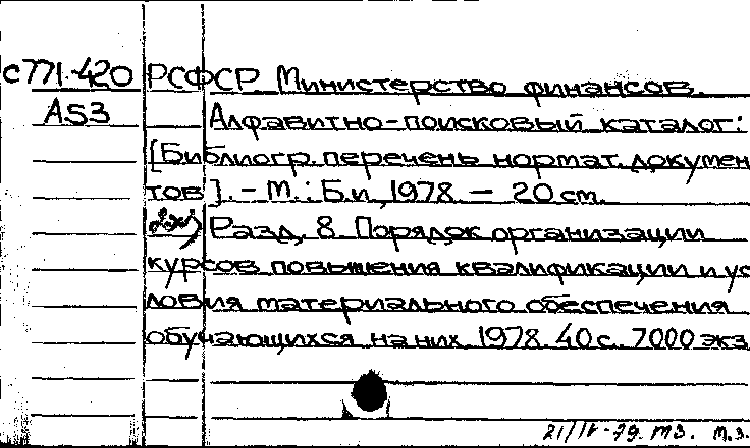 С771.420 РСФСР. Министерство финансов.
А53 Алфавитно-поисковый каталог:
[Библиогр. перечень нормат. докумен
тов]. - М.: Б.и, 1978. — 20 см.
Разд. 8. Порядок организации
курсов повышения квалификации и ус
ловия материального обеспечения
обучающихся на них. 1978. 40 с. 7000 экз
21/IV-79. МЗ. М.З.